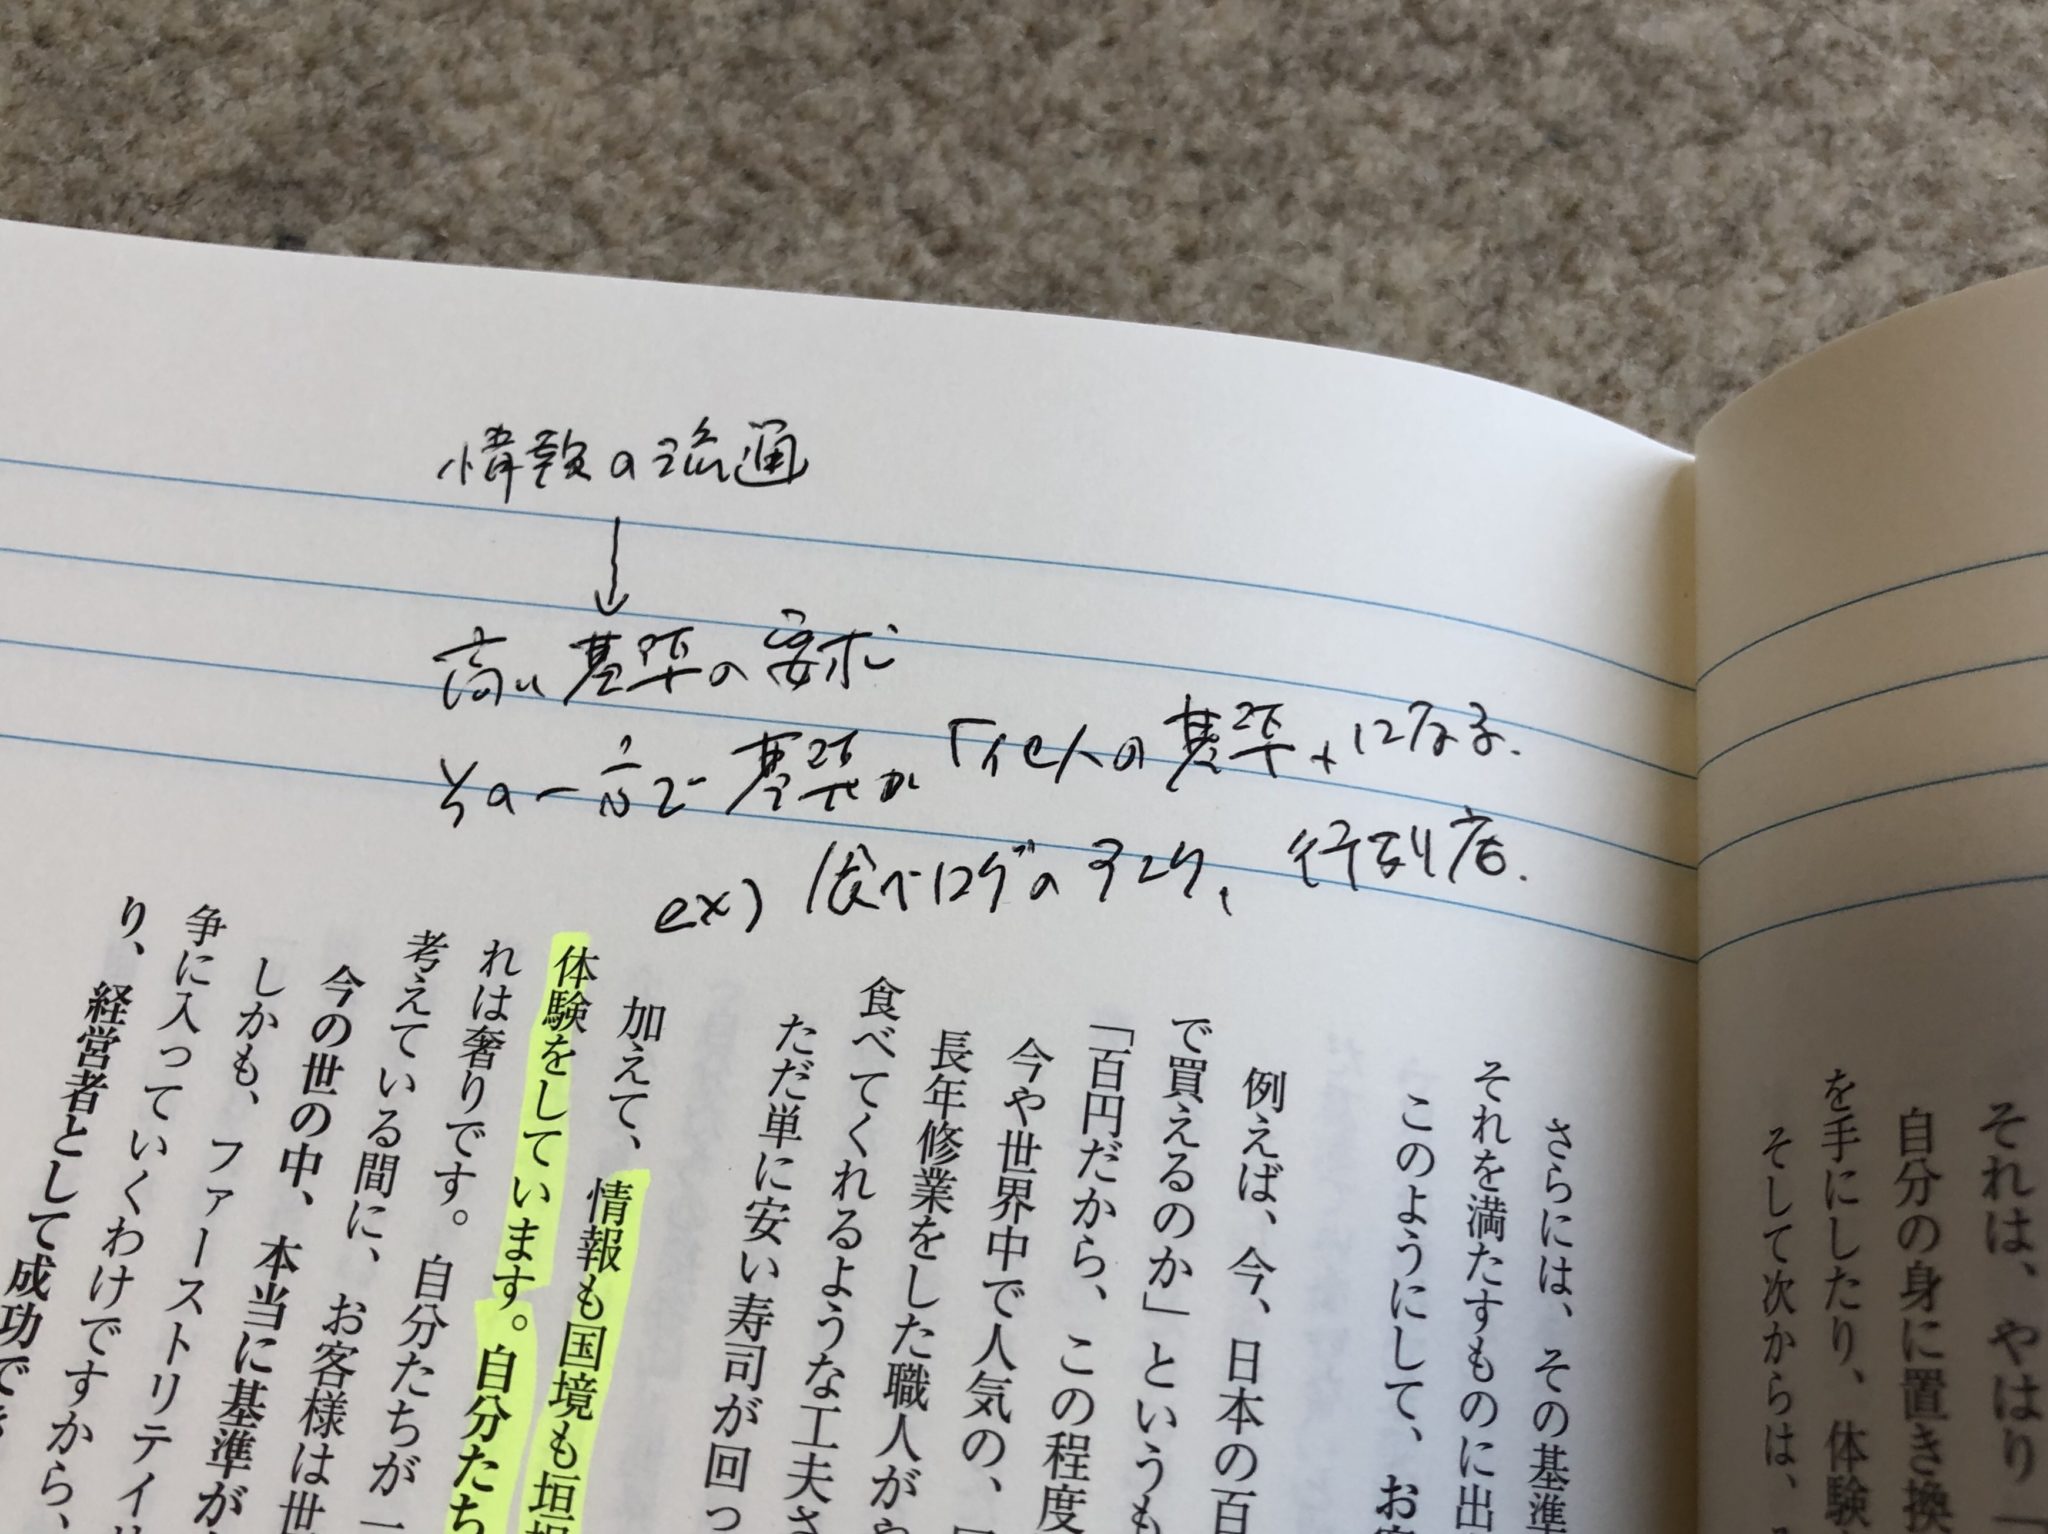 情報の流通
↓
高い基準の要求
その一方で基準が「他人の基準」になる.
ex) 食べログのランク、行列店.
それは、やはり「
自分の身に置き換
を手にしたり、体験
そして次からは、
さらには、その基準
それを満たすものに出
このようにして、お客
例えば、今、日本の百
で買えるのか」というも
「百円だから、この程度
今や世界中で人気の、「
長年修業をした職人がや
食べてくれるような工夫さ
ただ単に安い寿司が回っ
加えて、情報も国境も垣根
体験をしています。自分たち
れは奢りです。自分たちが一
考えている間に、お客様は世
今の世の中、本当に基準が
しかも、ファーストリテイリ
争に入っていくわけですから、
り、経営者として成功でき